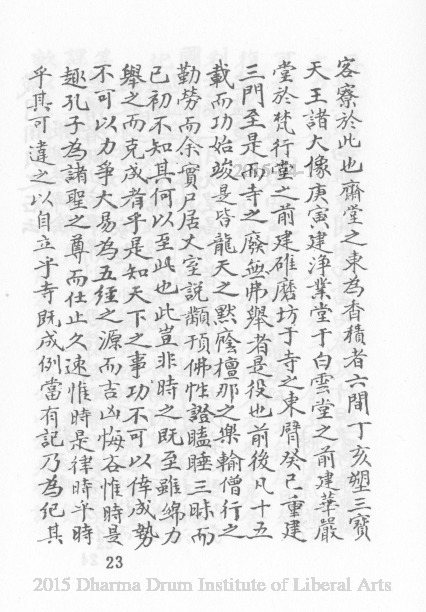 客寮於此也齋堂之東為香積者六間丁亥塑三寶
天王諸大像庚寅建淨業堂于白雲堂之前建華嚴
堂於梵行堂之前建碓磨坊于寺之東臂癸已重建
三門至是而寺之廢無弗舉者是役也前後凡十五
載而功始竣是皆龍天之默廕檀那之樂輸僧行之
勤勞而余實尸居丈室說顢頇佛性證瞌睡三昧而
已初不知其何以至此也此豈非時之既至雖綿力
舉之而克成者乎是知天下之事功不可以倖成勢
不可以力爭大易為五經之源而吉凶悔吝惟時是
趣孔子為諸聖之尊而仕止久速惟時是律時乎時
乎其可違之以自立乎寺既成例當有記乃為紀其
23
2015 Dharma Drum Institute of Liberal Arts